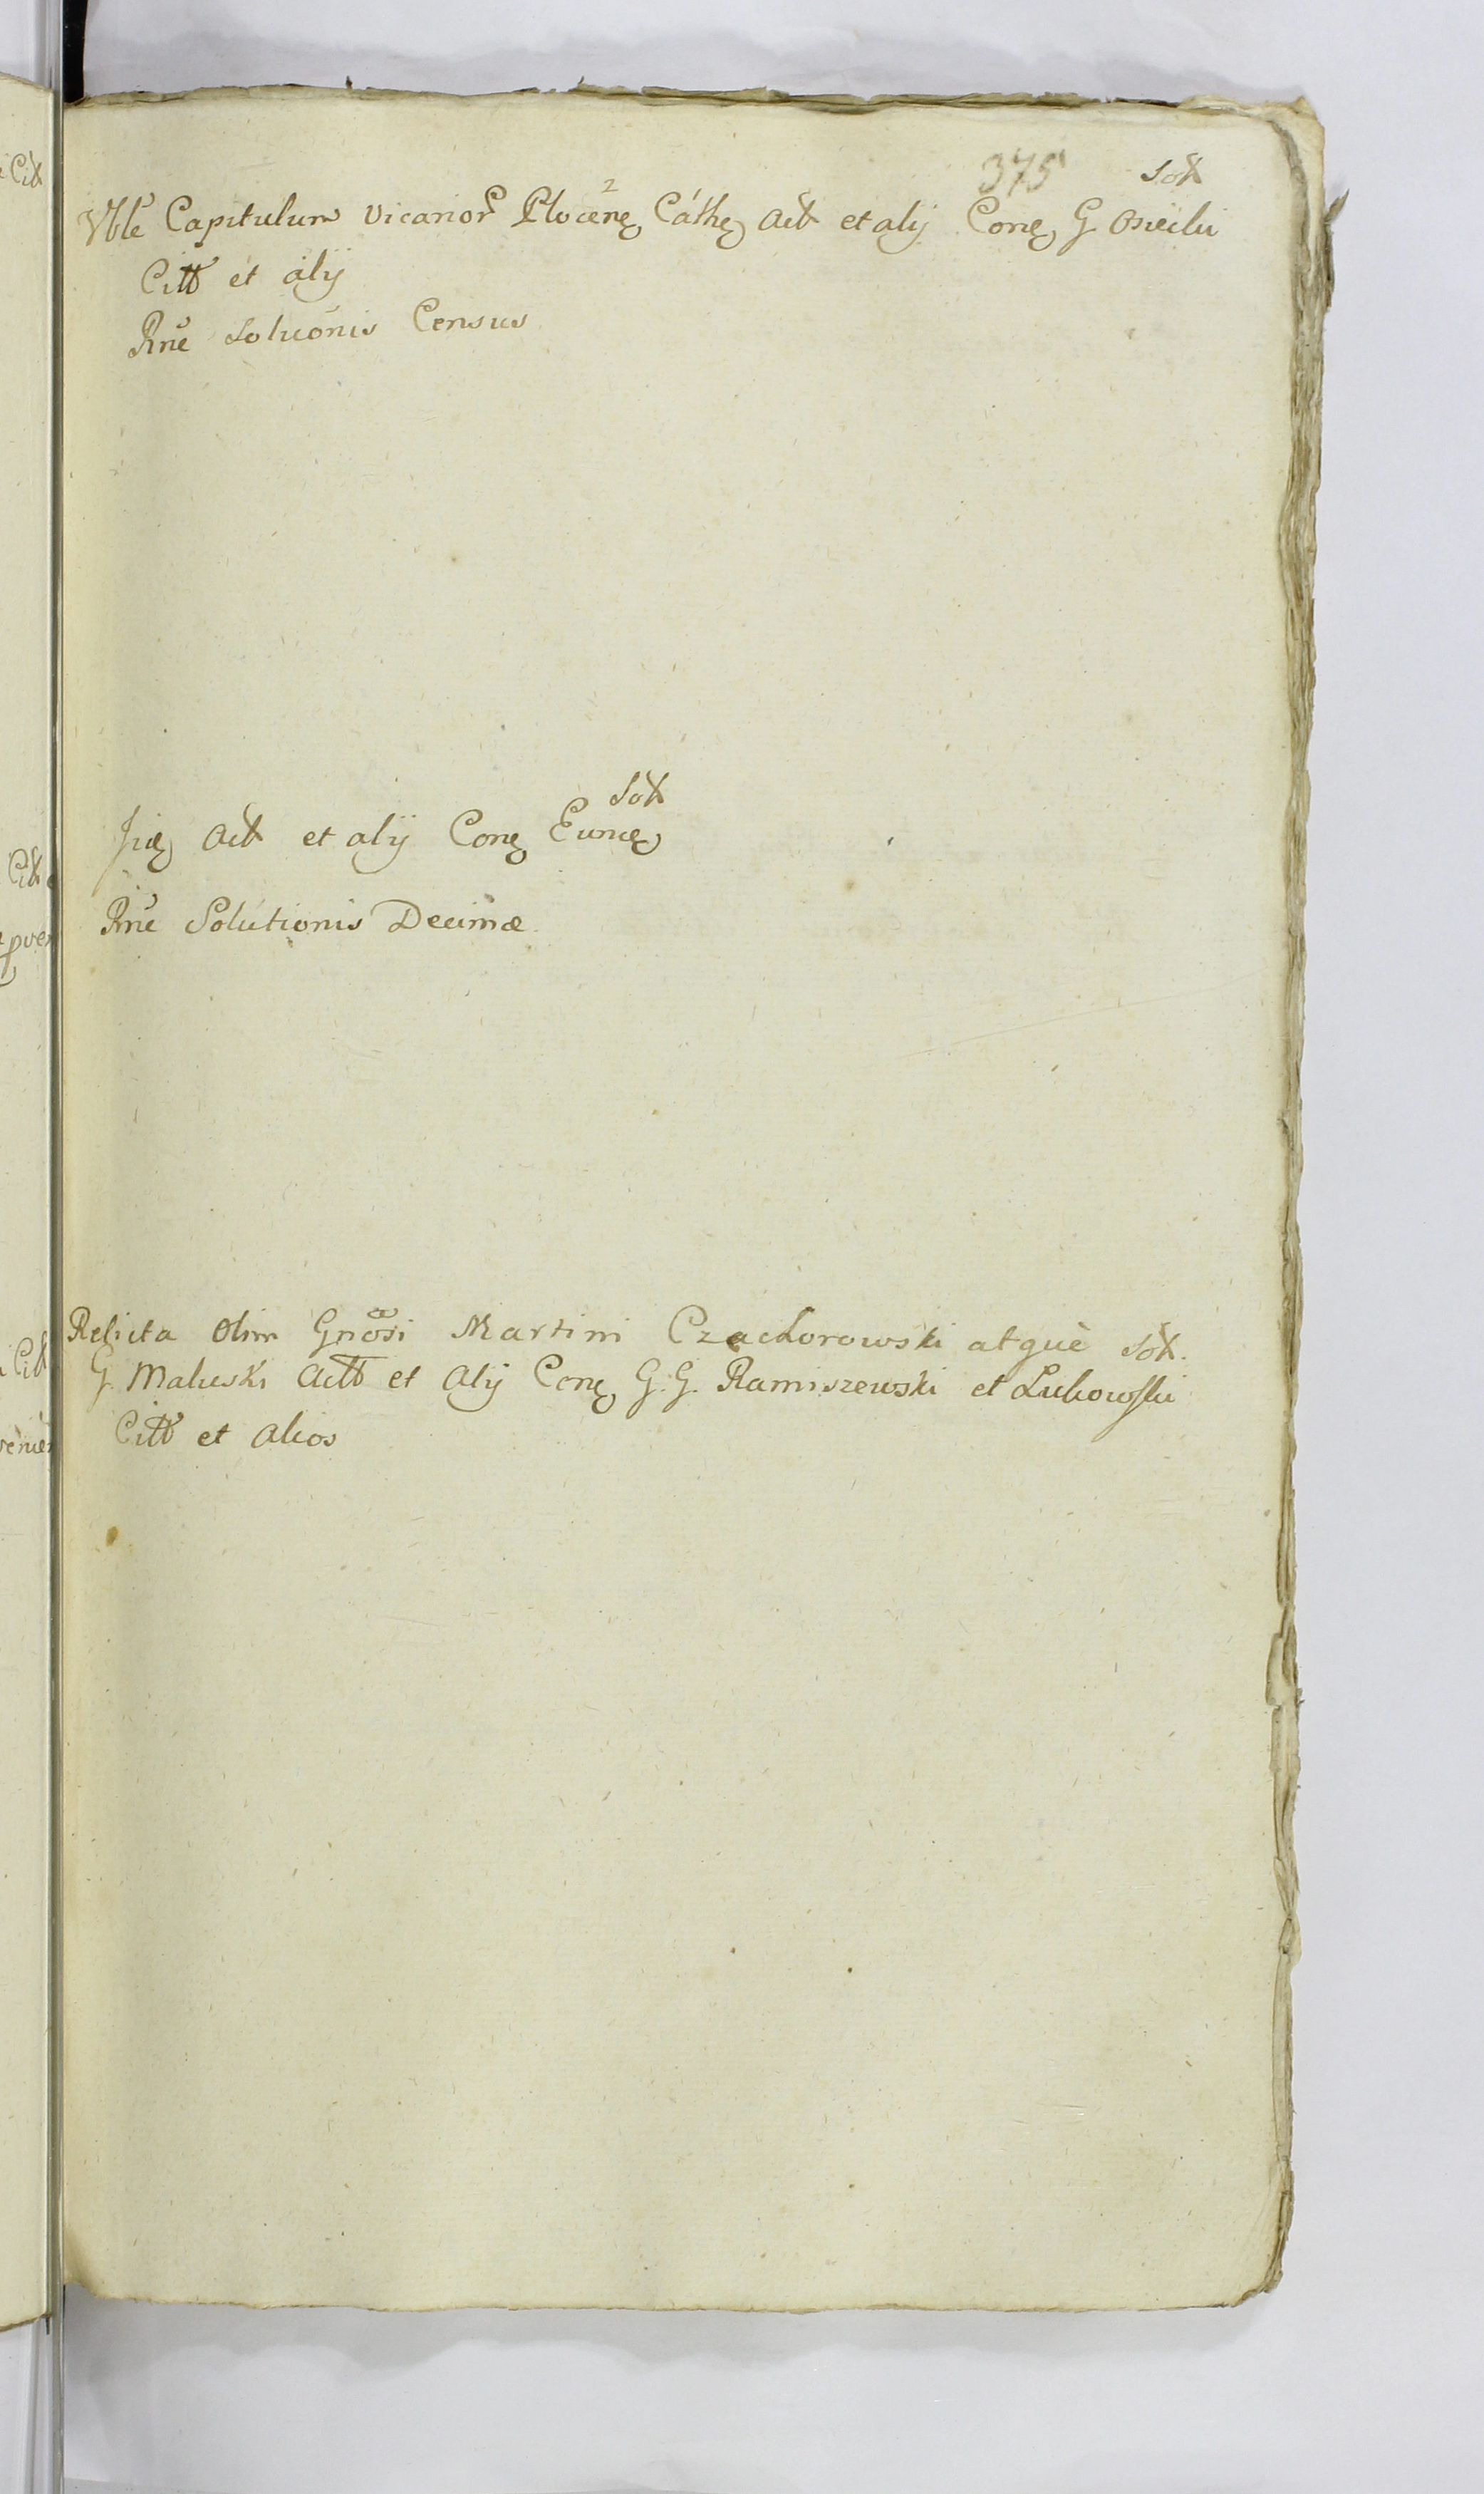 375
Sott
Vble Capitulum Vicarior Plocens Cathe Act et alij Cone G Osiecki
Citt et alij
Rne Soluonis Census
Sott
Act et alij Cone Eunde
Rne Solutionis Decimæ
Relicta Olim Gnosi Martini Czachorowski atque Sott.
G Maluski Actt et Alij Cone G. G. Ramiszewski et Lukowski
Citt et Alios